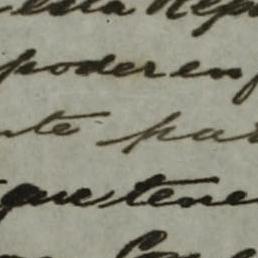 esta Repu
poder en
nte par
que tene